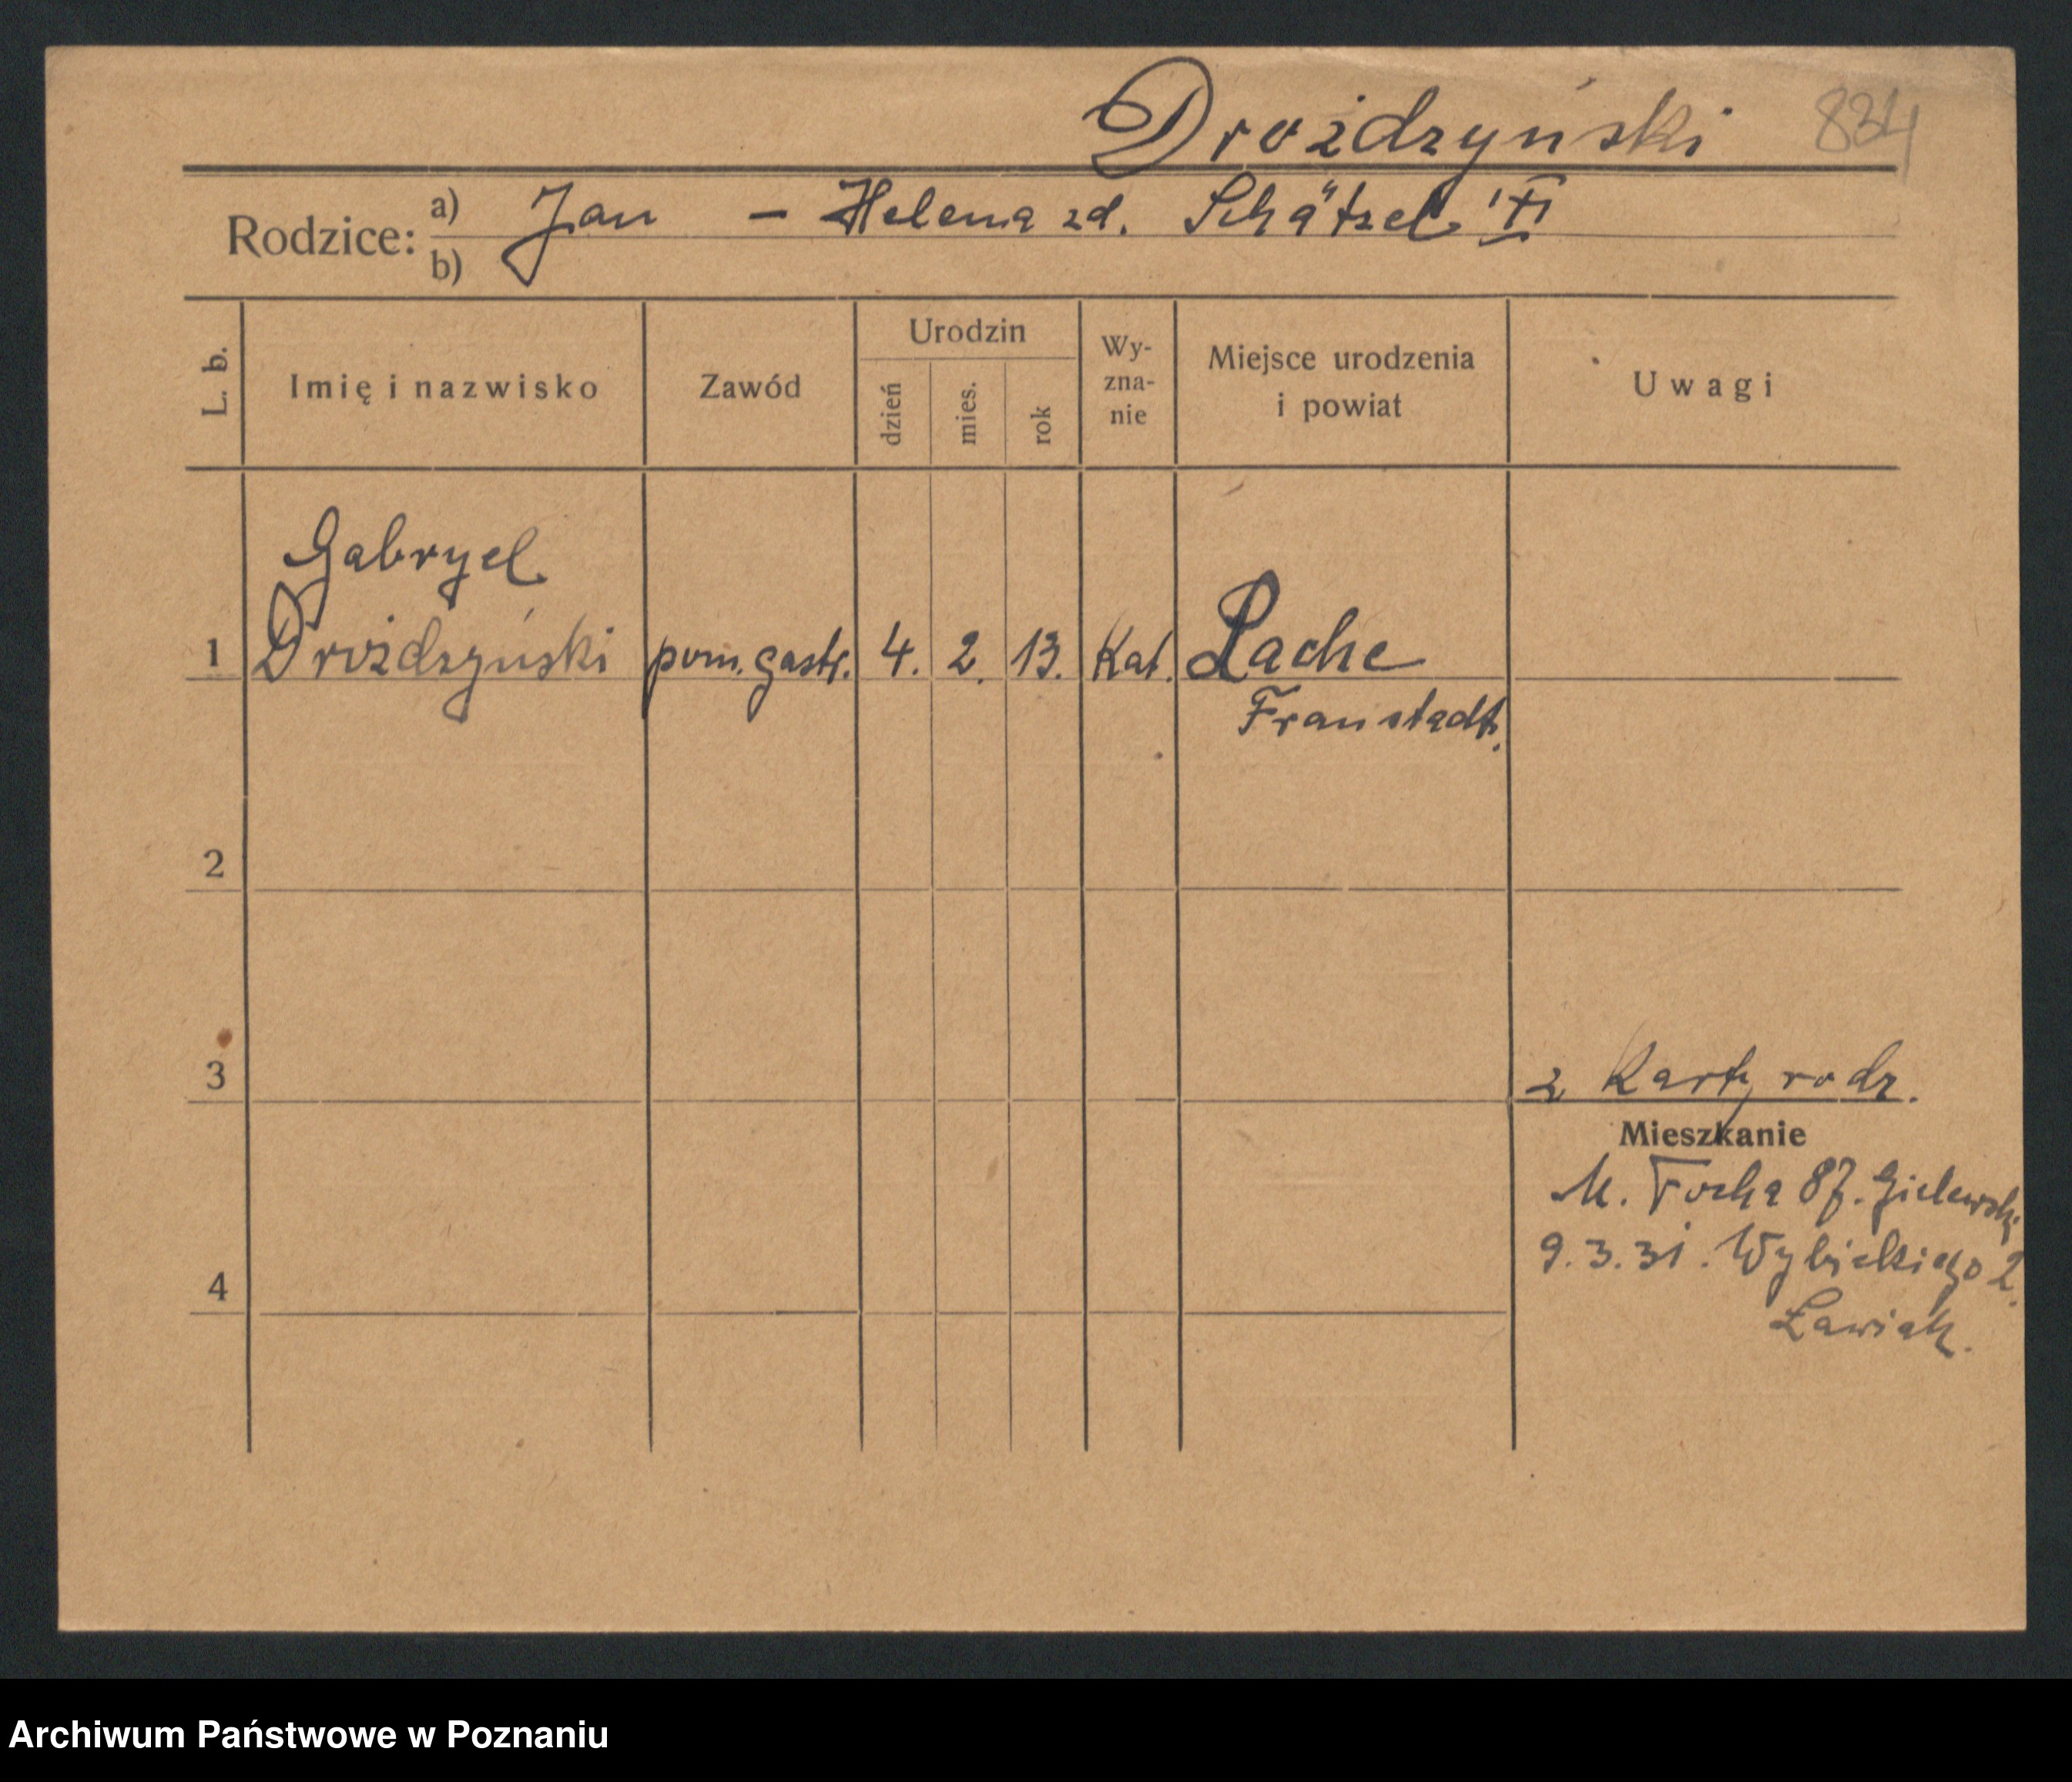 Drożdzyński 834
Rodzice: a) Jan – Helena zd. Schätzel
b)
L. b.
Imię i nazwisko
Zawód
Urodzin
dzień
mies.
rok
Wy-
zna-
nie
Miejsce urodzenia
i powiat
Uwagi
Gabryel
1 Drożdzyński pom. gastr. 4. 2. 13. Kat. Lache
Fraustadt.
2
3
2 Karty rodz.
Mieszkanie
M. Focha 87. Gielewski
9.3.31. Wybickiego 2.
4
Ławiak.
Archiwum Państwowe w Poznaniu